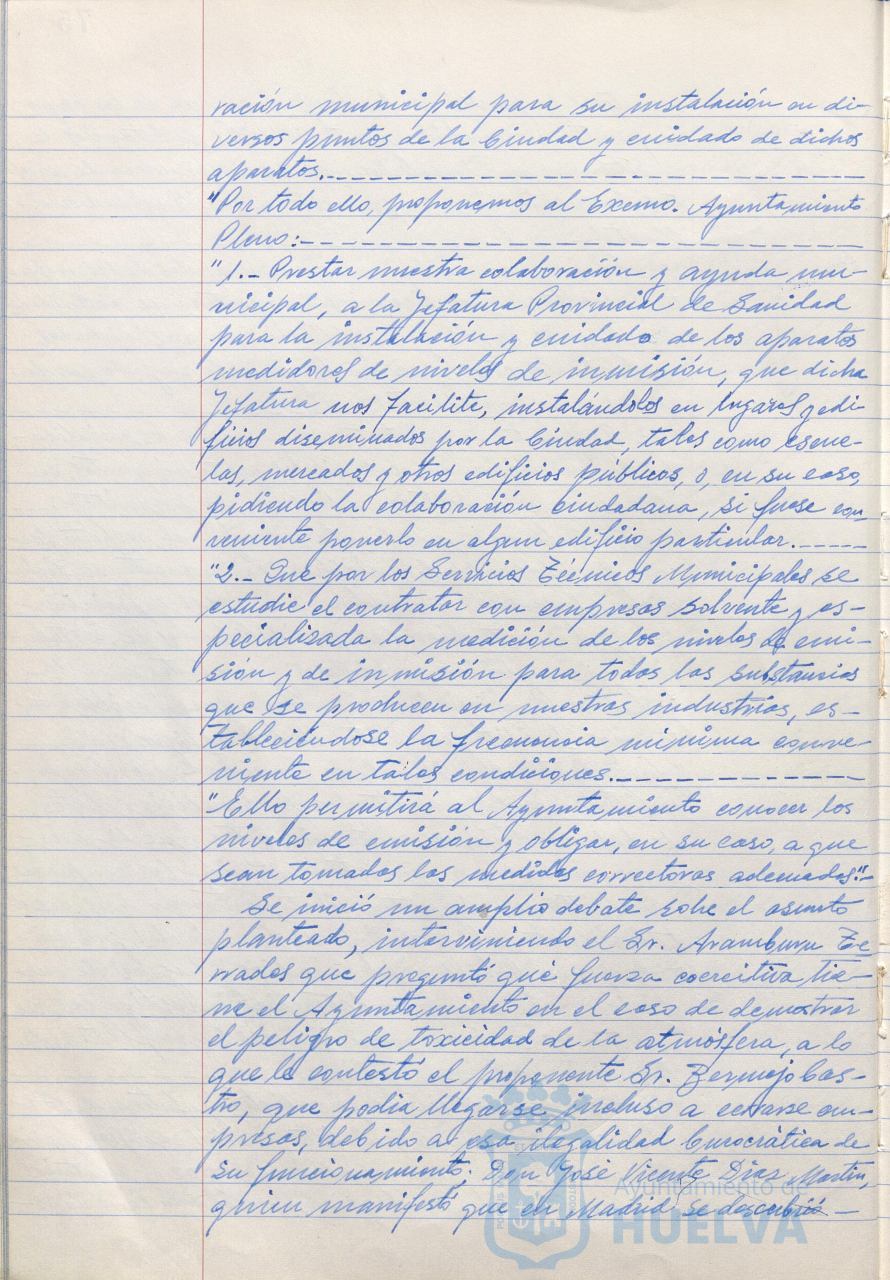 ración municipal para su instalación en di-
versos puntos de la Ciudad y cuidado de dichos
aparatos.
"Por todo ello, proponemos al Excmo. Ayuntamiento
Pleno:
"1.- Prestar nuestra colaboración y ayuda mu-
nicipal, a la Jefatura Provincial de Sanidad
para la instalación y cuidado de los aparatos
medidores de niveles de inmisión, que dicha
Jefatura nos facilite, instalándolos en lugares y edi-
ficios diseminados por la Ciudad, tales como escue-
las, mercados y otros edificios públicos, o, en su caso,
pidiendo la colaboración ciudadana, si fuese con-
veniente ponerlo en algun edificio particular.
"2.- Que por los Servicios Técnicos Municipales se
estudie el contratar con empresas solvente y es-
pecializada la medición de los niveles de emi-
sión y de inmisión para todas las substancias
que se producen en nuestras industrias, es-
tableciéndose la frecuencia mínima conve-
niente en tales condiciones.
"Ello permitirá al Ayuntamiento conocer los
niveles de emisión y obligar, en su caso, a que
sean tomadas las medidas correctoras adecuadas".-
Se inició un amplio debate sobre el asunto
planteado, interviniendo el Sr. Aramburu Te-
rrados que preguntó qué fuerza coercitiva tie-
ne el Ayuntamiento en el caso de demostrar
el peligro de toxicidad de la atmósfera, a lo
que le contestó el proponente Sr. Bermejo Cas-
tro, que podía llegarse incluso a cerrarse em-
presas, debido a esa ilegalidad burocrática de
su funcionamiento; Don José Vicente Díaz Martín,
quien manifestó que en Madrid se descubrió -
Ayuntamiento de
HUELVA